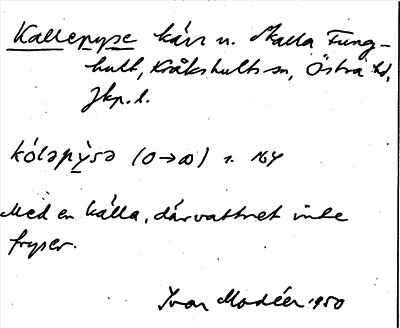 Kallepyse kärr n. Skalla Fung-
hult, Kråkshults sn, Östra hd,
Jkp. l.
kóləpỳsə (o→ω) s. 164
Med en källa, där vattnet inte
fryser.
Ivar Modéer 1950